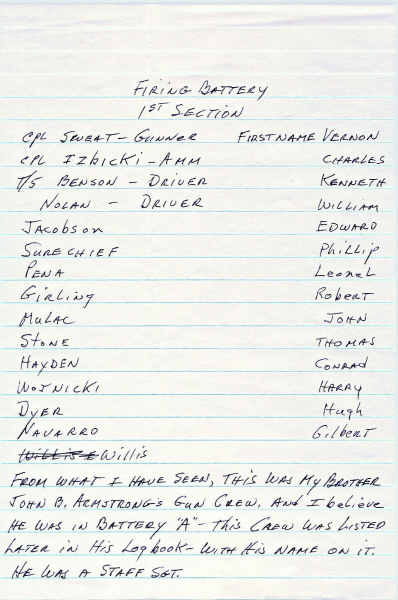 FIRING BATTERY
1ST SECTION
CPL SWEAT - GUNNER FIRSTNAME VERNON
CPL IZBICKI - AMM CHARLES
T/5 BENSON - DRIVER KENNETH
NOLAN - DRIVER WILLIAM
Jacobson EDWARD
SURECHIEF Phillip
PENA Leonel
Girling Robert
MULAC JOHN
STONE THOMAS
HAYDEN CONRAD
WOJNICKI HARRY
DYER Hugh
NAVARRO Gilbert
Willis
FROM WHAT I HAVE SEEN, THIS WAS MY BROTHER
JOHN B. ARMSTRONG'S GUN CREW. AND I believe
HE WAS IN BATTERY "A" - THIS CREW WAS LISTED
LATER IN HIS LOGBOOK - WITH HIS NAME ON IT.
HE WAS A STAFF SGT.